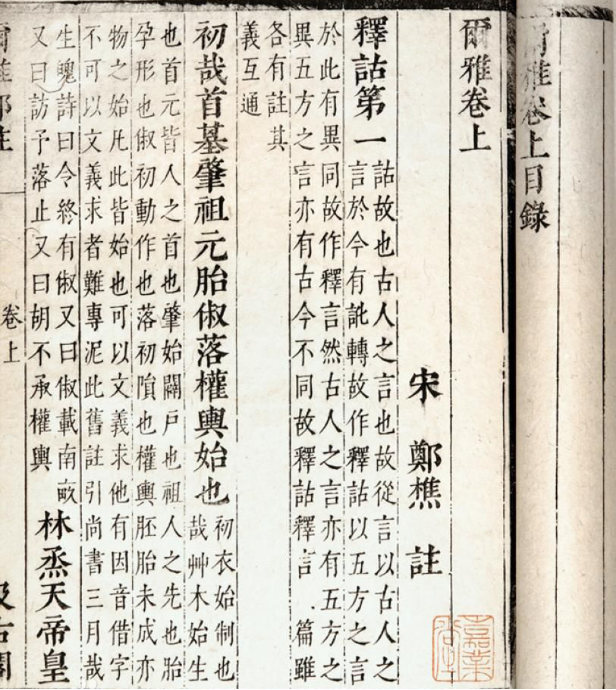 爾雅卷上目錄
爾雅卷上
宋 鄭樵 註
釋詁第一
詁故也古人之言也故從言以古人之
言於今有訛轉故作釋詁以五方之言
於此有異同故作釋言然古人之言亦有五方之
異五方之言亦有古今不同故釋詁釋言 篇雖
各有註其
義互通
初哉首基肇祖元胎俶落權輿始也
初衣始制也
哉艸木始生
也首元皆人之首也肇始闢戶也祖人之先也胎
孕形也俶初動作也落初隕也權輿胚胎未成亦
物之始凡此皆始也可以文義求他有因音借字
不可以文義求者難專泥此舊註引尚書三月哉
生魄詩曰令終有俶又曰俶載南畝
又曰訪予落止又曰胡不承權輿
林烝天帝皇
爾雅鄭註
卷上
汲古閣